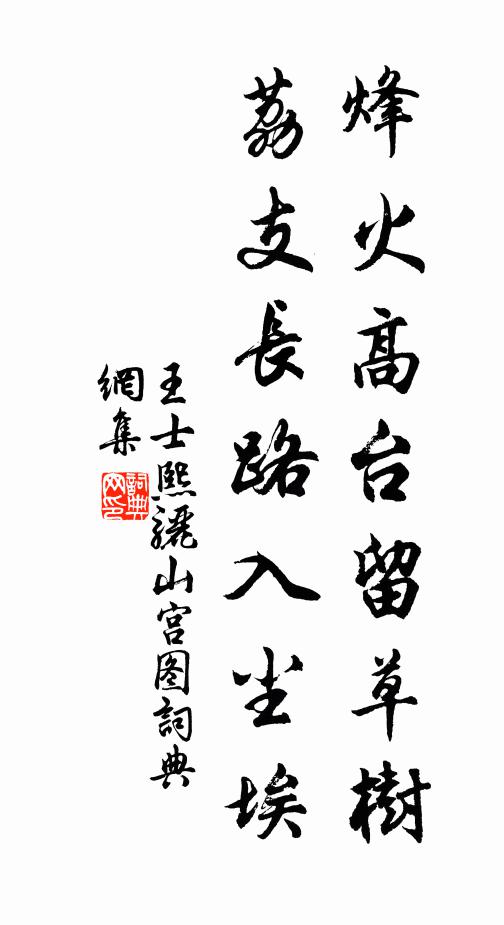 烽火高台留草樹
荔支長路入尘埃
王士熙驪山宫图詞典
網集
詞典
网印